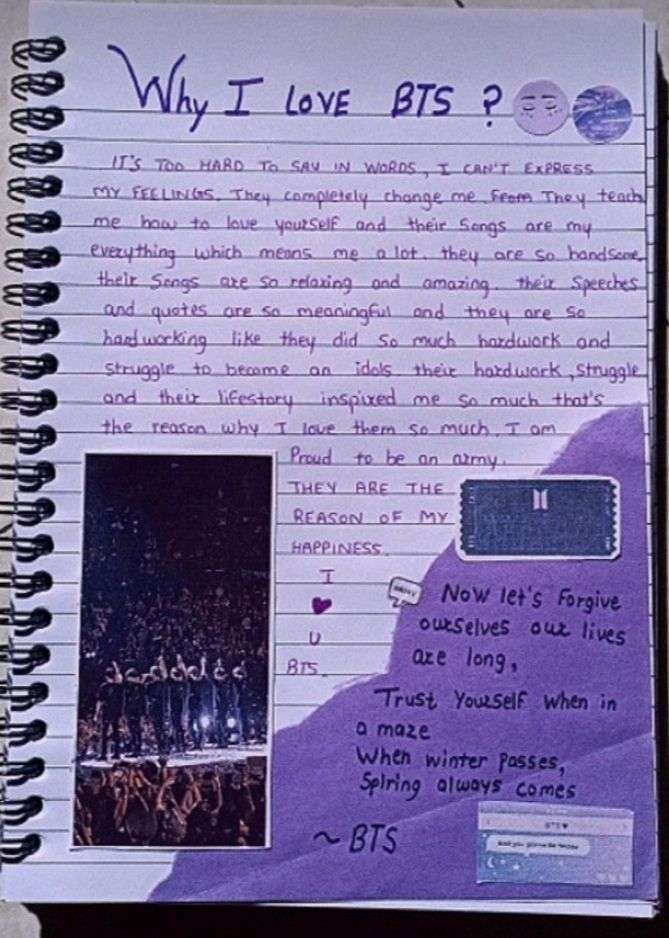 Why I LOVE BTS ?
IT'S TOO HARD TO SAY IN WORDS, I CAN'T EXPRESS
MY FEELINGS. They completely change me from They teach
me how to love yourself and their Songs are my
everything which means me a lot. they are so handsome,
their Songs are so relaxing and amazing. their Speeches
and quotes are so meaningful and they are so
hardworking like they did so much hardwork and
struggle to become an idols their hardwork, struggle
and their lifestory inspired me so much that's
the reason why I love them so much. I am
Proud to be an army.
THEY ARE THE
REASON OF MY
HAPPINESS.
I
♥
U
BTS.
Now let's Forgive
ourselves our lives
are long,
Trust Yourself when in
a maze
When winter passes,
Spiring always comes
~ BTS
BTS ♥